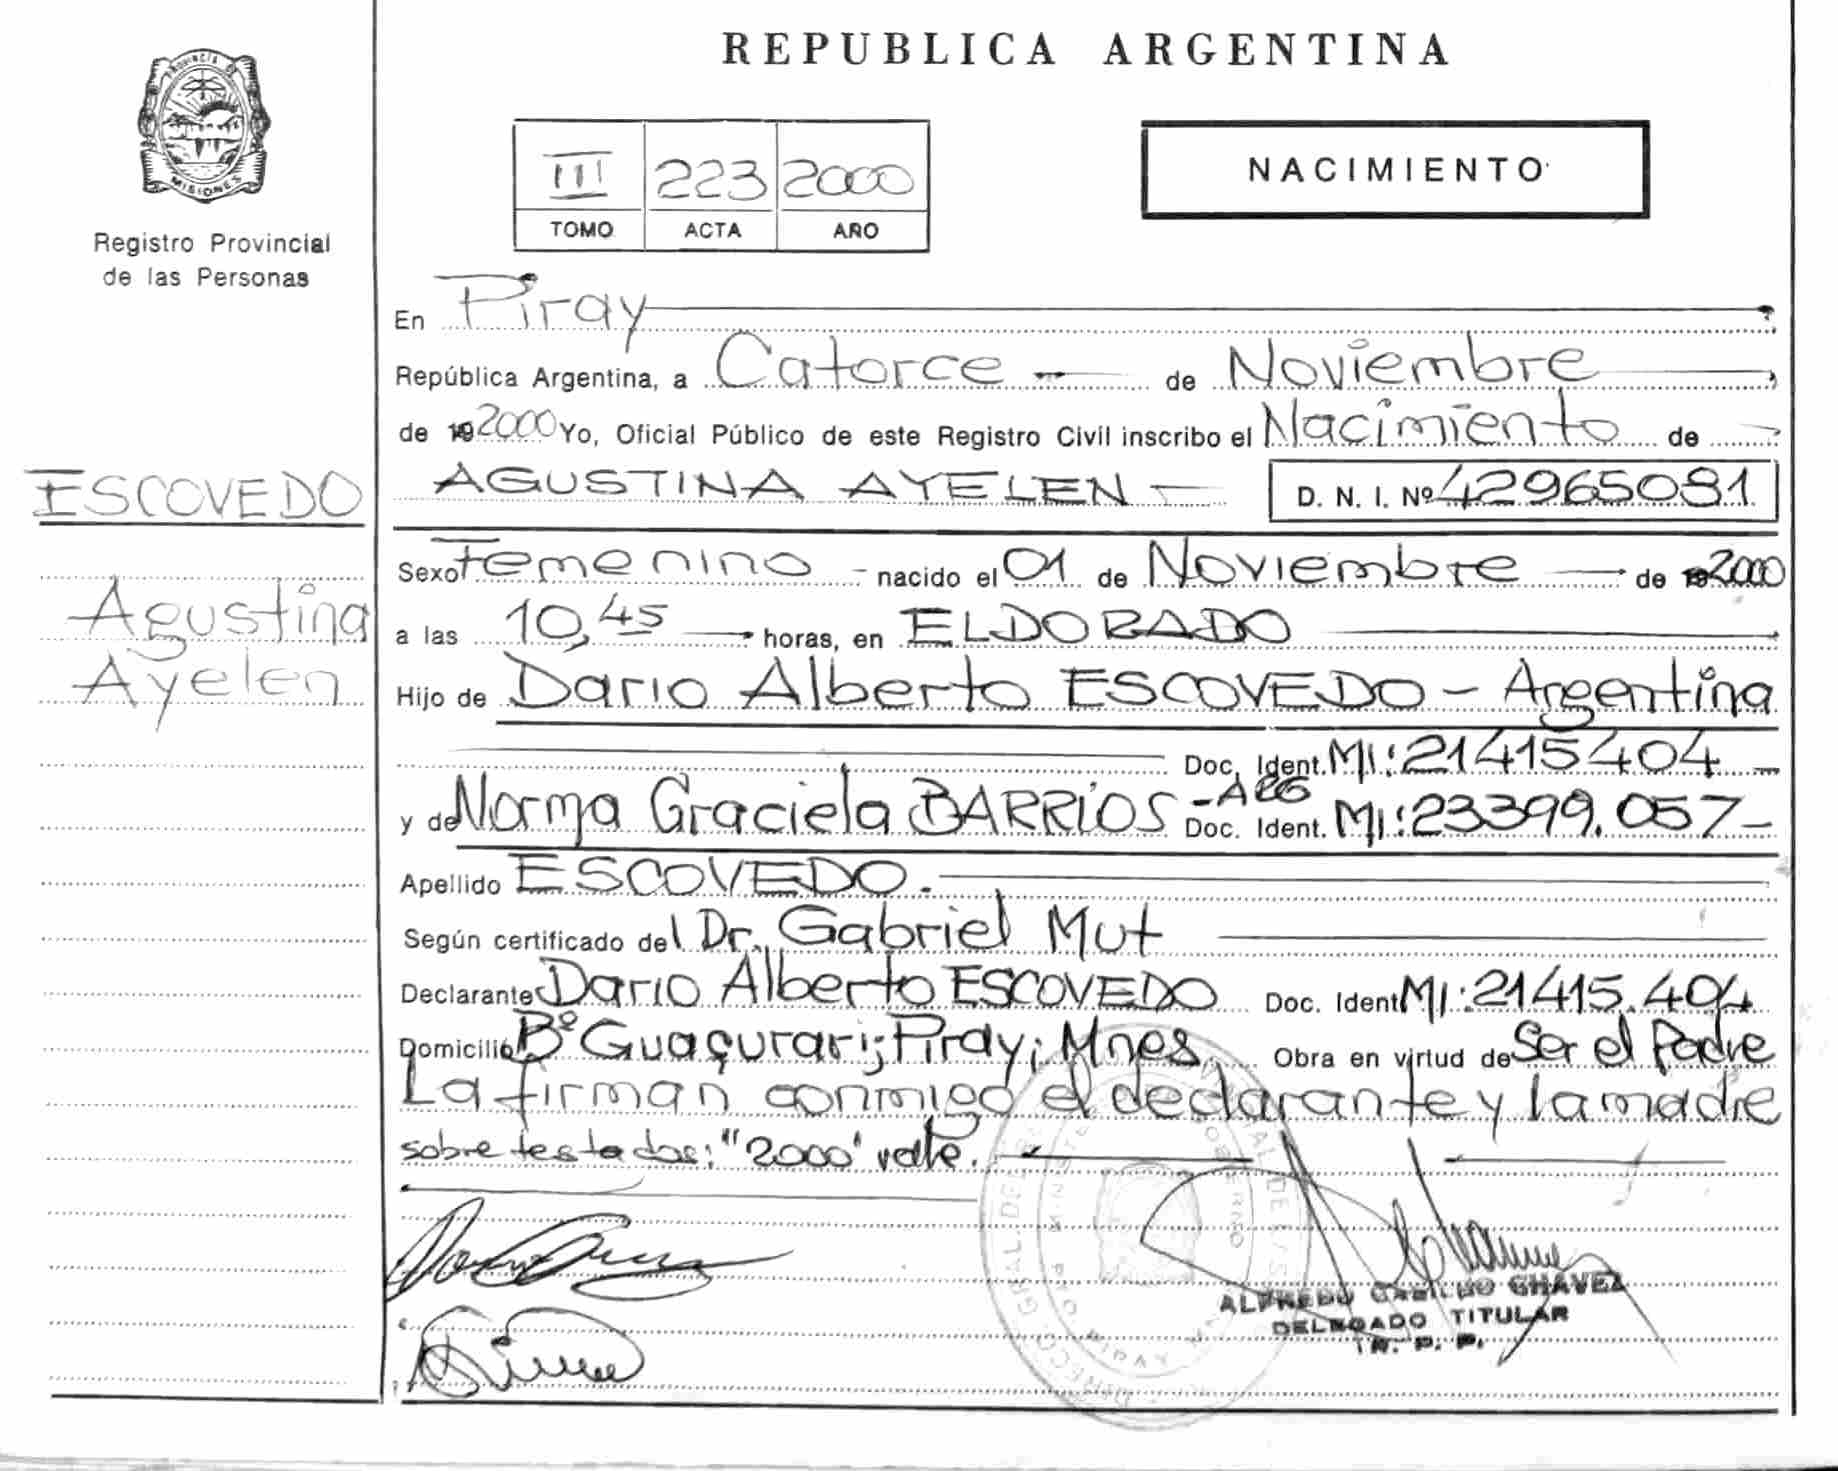 REPUBLICA ARGENTINA
PROVINCIA DE
MISIONES
Registro Provincial
de las Personas
III 223 2000
TOMO ACTA AÑO
NACIMIENTO
En Piray
República Argentina, a Catorce de Noviembre
de 19 2000 Yo, Oficial Público de este Registro Civil inscribo el Nacimiento de
ESCOVEDO
AGUSTINA AYELEN - D. N. I. Nº 42965081
Sexo Femenino - nacido el 01 de Noviembre de 19 2000
Agustina
Ayelen
a las 10,45 horas, en ELDORADO
Hijo de Dario Alberto ESCOVEDO - Argentina
Doc. Ident. MI: 21415404 -
y de Norma Graciela BARRIOS - ARG Doc. Ident. MI: 23399.057 -
Apellido ESCOVEDO.
Según certificado del Dr. Gabriel Mut
Declarante Dario Alberto ESCOVEDO Doc. Ident MI: 21415.404
Domicilio Bº Guaçurari; Piray; Mnes Obra en virtud de Ser el Padre
La firman conmigo el declarante y la madre
sobre testados: "2000" vale.
ALFREDO CHAVEZ
DELEGADO TITULAR
R. P. P.